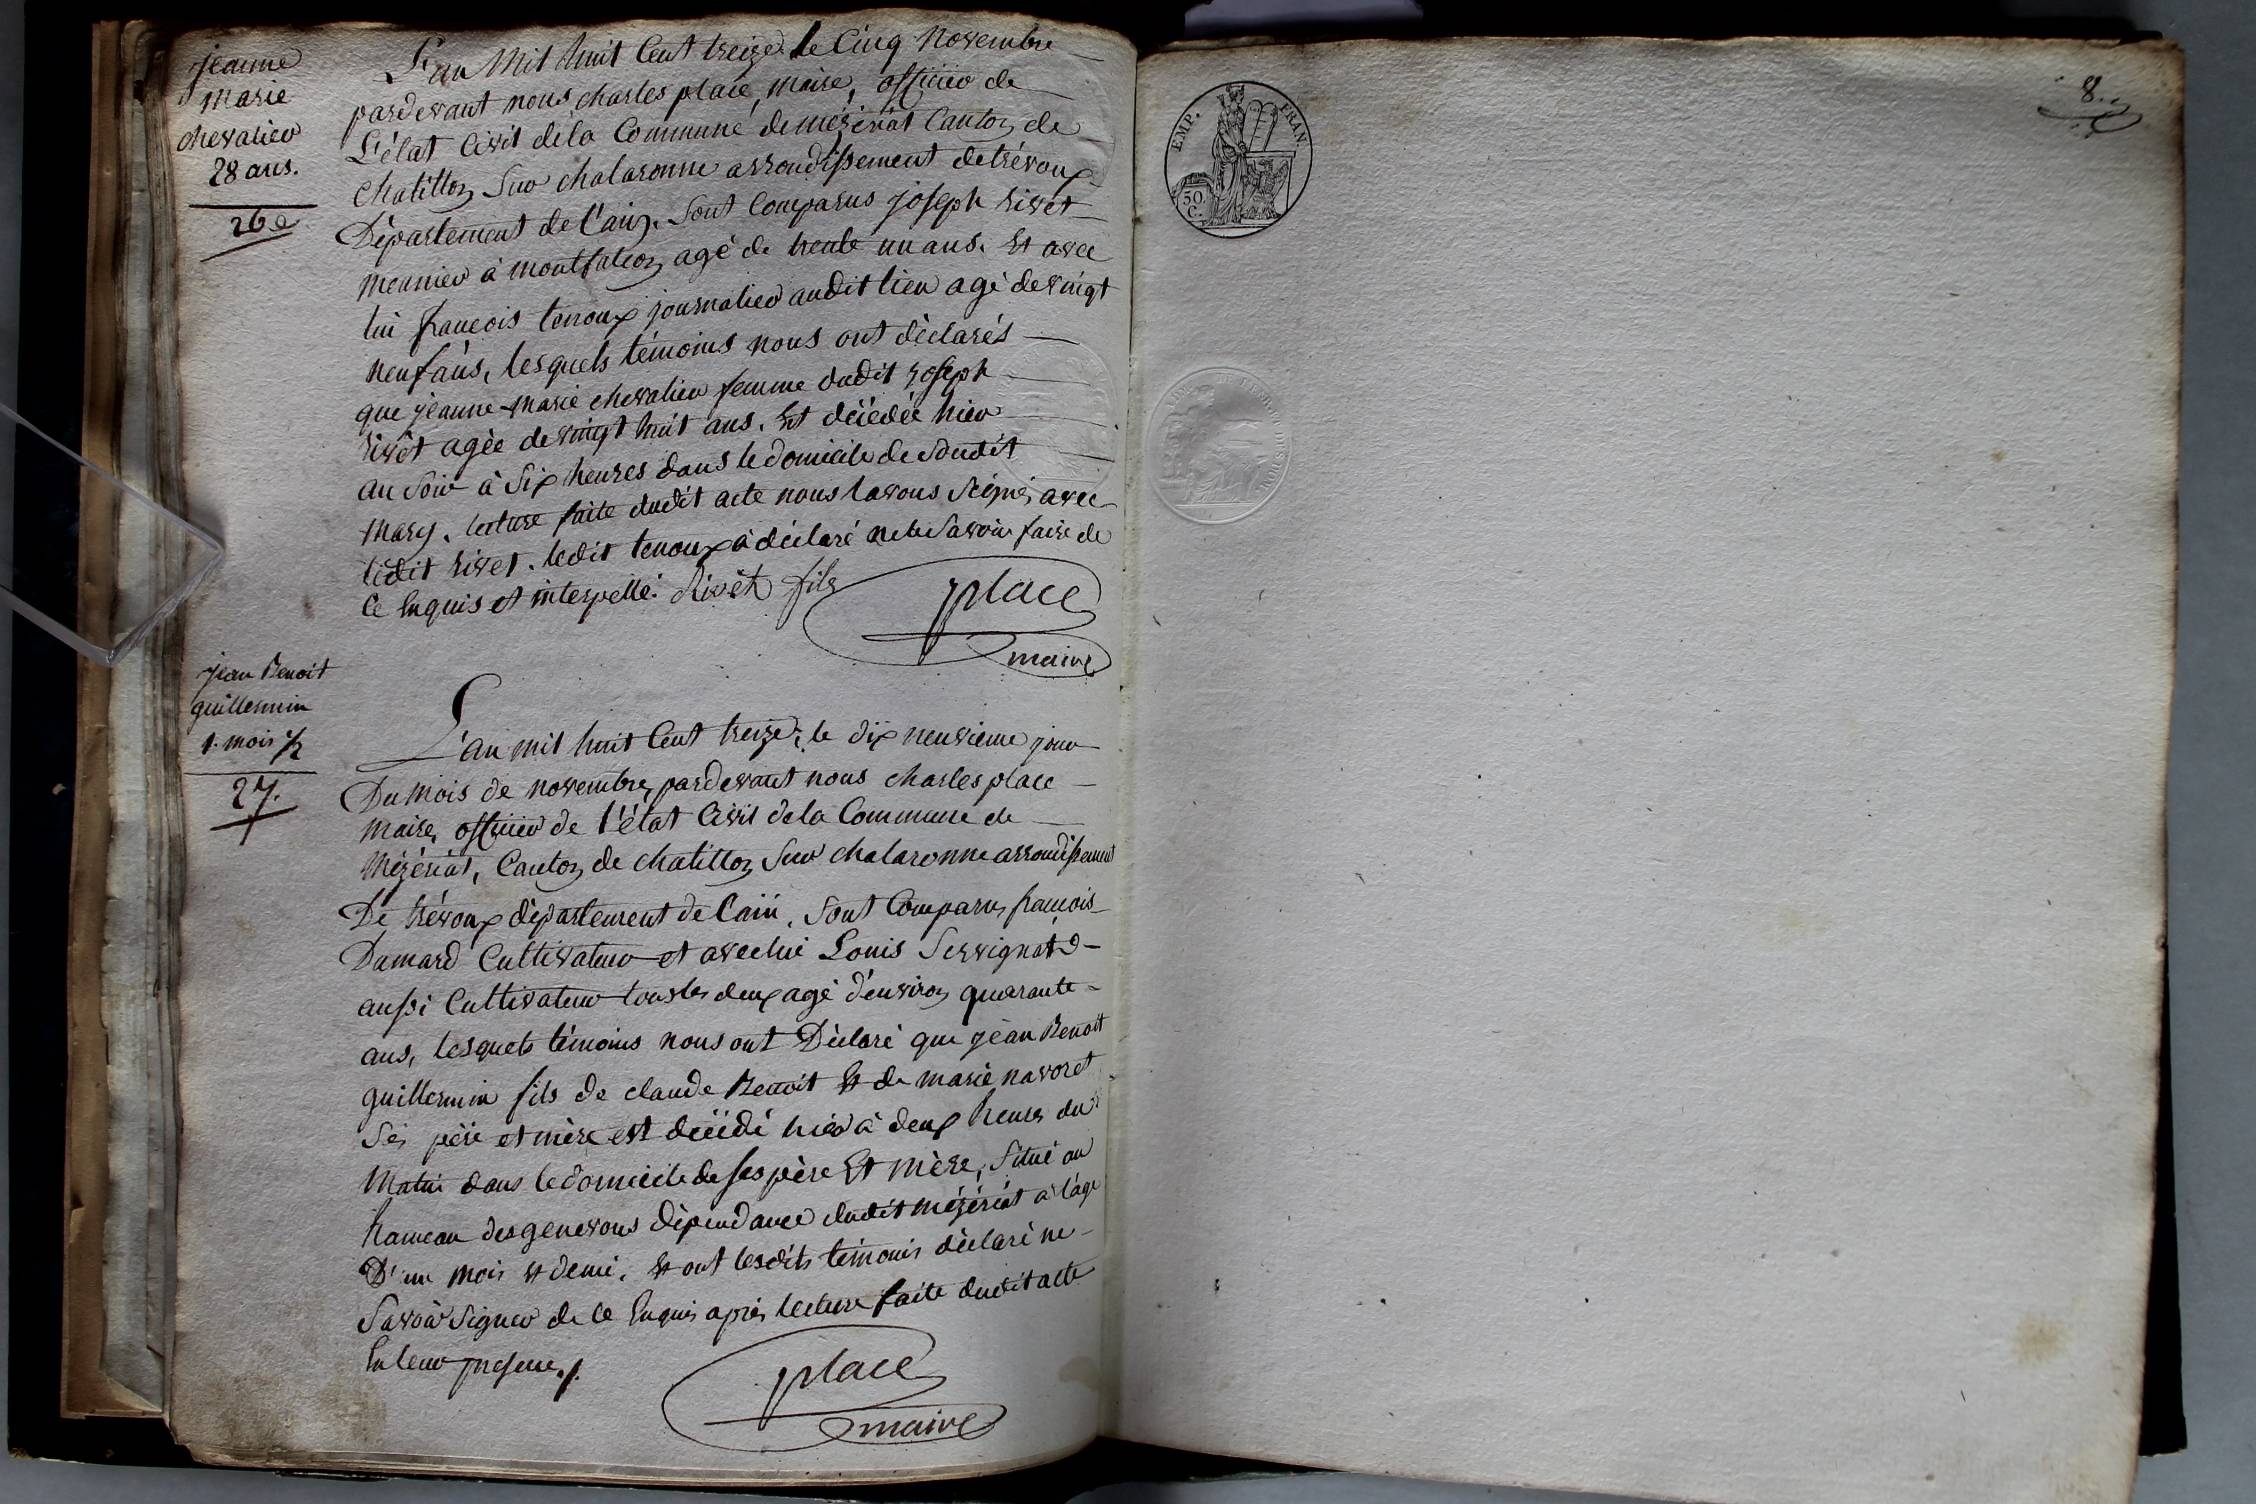 jeanne
marie
chevalier
28 ans.
26e
L'an Mil huit Cent treize le Cinq Novembre
pardevant nous charles place, Maire, officier de
L'état Civil dela Commune de mézériat Canton de
chatillon Sur chalaronne arrondissement de trévoux
Département de l'ain. Sont Comparus joseph rivet
meunier à montfalcon agé de trente un ans. Et avec
lui francois tenoux journalier audit lieu agé de vingt
neuf ans, lesquels témoins nous ont déclarés
que jeanne-marie chevalier femme dudit joseph
rivêt agée de vingt huit ans. Et décédée hier
au Soir à Six heures dans le domicile de Soudit
mary. lecture faite dudit acte nous lavons Scigné avec
ledit rivet. ledit tenoux à déclaré ne le Savoir faire de
Ce Enquis et interpellé. Rivêt fils
place
maire
jean Benoit
guillermin
1. mois 1/2
27.
L'an mil huit Cent treize, le dix neuvieme jour
Du mois de novembre, pardevant nous charles place
maire, officier de l'état Civil dela Commune de
Mézériat, Canton de chatillon Sur chalaronne arrondissement
De trévoux département de l'ain. Sont Comparus francois
Damard Cultivateur et avec lui Louis Servignat
aussi Cultivateur tous les deux agé d'environ quarante
ans, lesquels témoins nous ont Déclaré que jean Benoit
guillermin fils de claude Benoit Et de marie navoret
Ses père et mère est décédé hier à deux heures du
Matin dans le domicile de ses père Et mère, Situé au
hameau des genevous dépendance dudit mézériat à l'âge
D'un mois et demi. Et ont lesdits témoins déclaré ne
Savoir Signer de ce Enquis après lecture faite dudit acte
En leur presence./.
place
maire
8.
EMP. FRAN.
50
C.